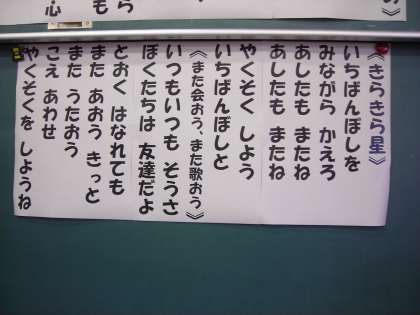 《きらきら星》
いちばんぼしを
みながら かえろ
あしたも またね
あしたも またね
やくそく しよう
いちばんぼしと
《また会おう、また歌おう》
いつもいつも そうさ
ぼくたちは 友達だよ
とおく はなれても
また あおう きっと
また うたおう
こえ あわせ
やくそくを しようね